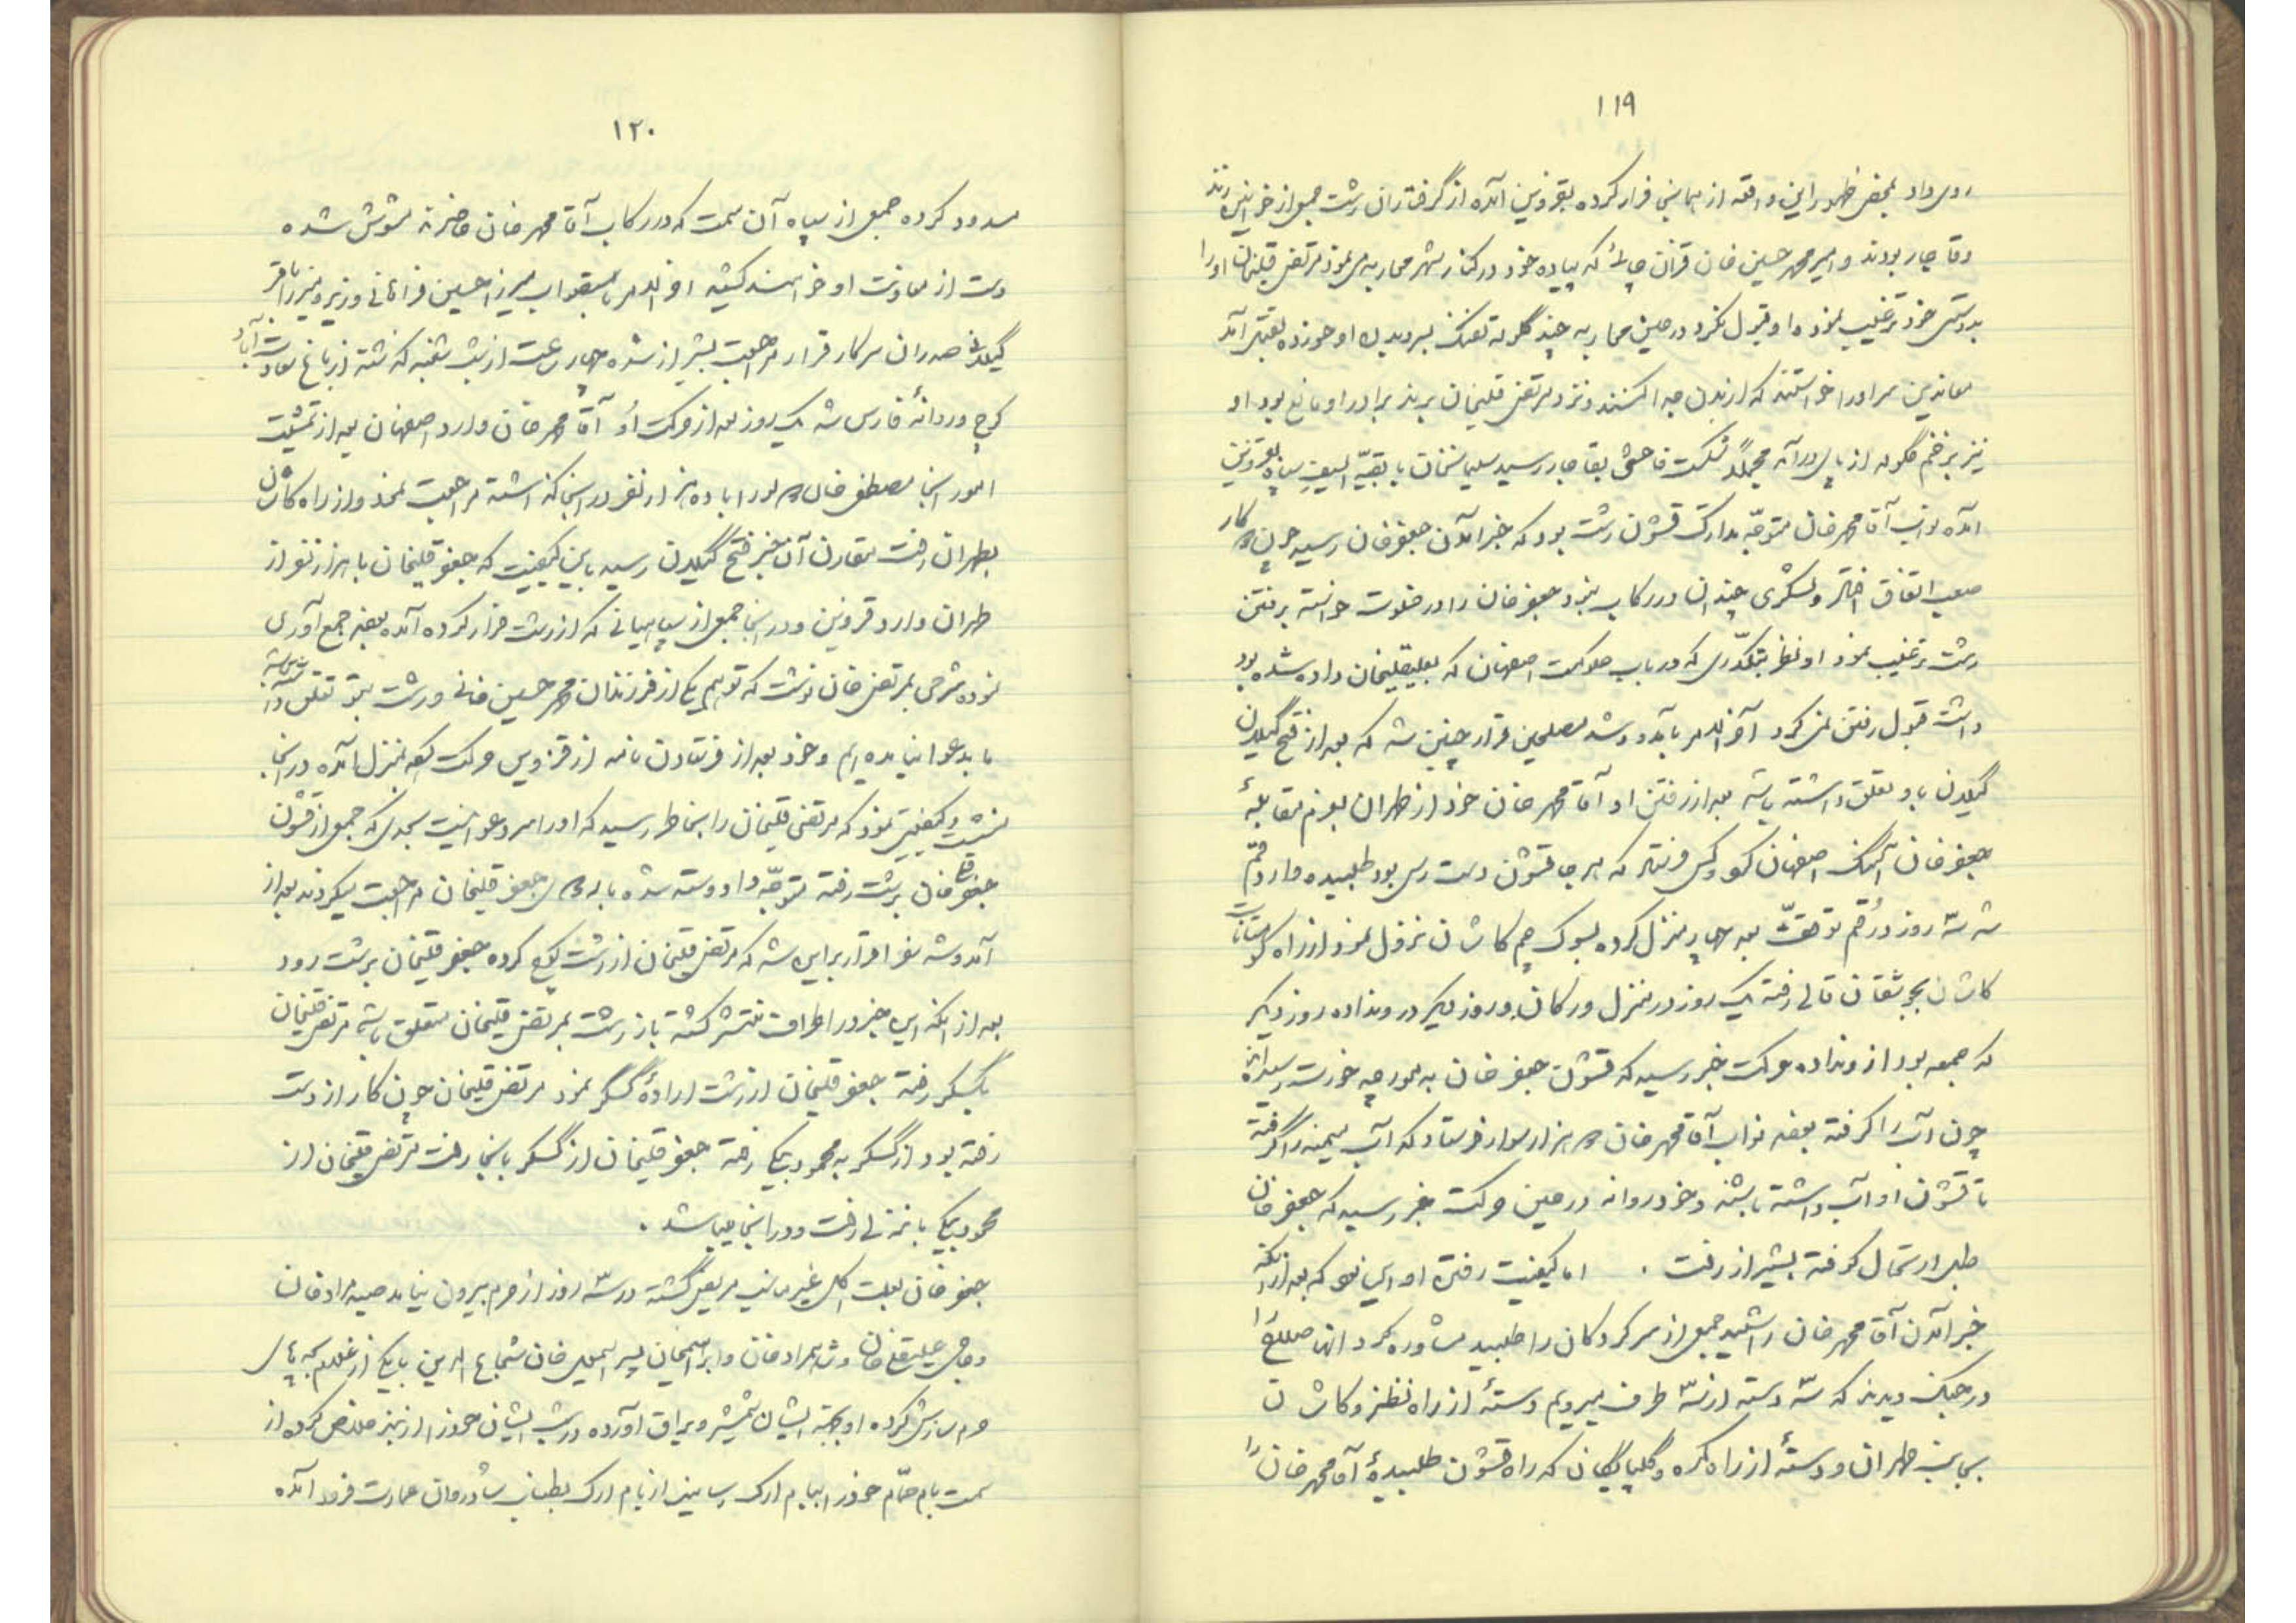 ۱۱۹
روی داد بمحض ظهور این واقعه از همانجا فرار کرده بقزوین آمده از گرفتاران رشت جمعی از خوانین زند
و قاجار بودند و امیر محمد حسین خان قرآن که پیاده خود در کنار شهر محاربه می نمود مرتضی قلیخان او را
بدوستی خود ترغیب نموده او قبول نکرد در حین محاربه چند گلوله تفنگ بسر و بدن او خورده بقتل آمد
معاندین سر او را خواستند که از بدن جدا کنند و نزد مرتضی قلیخان برند برادر او مانع بود او
نیز بزخم گلوله از پای درآمد مجملاً شکست فاحشی بقاجار رسید سلیمانخان با بقیّة السیف سپاه بقزوین
آمده نواب آقا محمد خان متوجّه تدارک قشون رشت بود که خبر آمدن جعفر خان رسید چون کار
صعب اتفاق افتاد و لشکری چندان در رکاب نبود جعفر خان را در خلوت خواسته برفتن
رشت ترغیب نمود او نظر بتکدّری که در باب حکومت اصفهان که بعلیقلیخان داده شده بود
داشت قبول رفتن نمی کرد آخر الامر بآمد و شد مصلحین قرار چنین شد که بعد از فتح گیلان
گیلان باو تعلق داشته باشد بعد از رفتن او آقا محمد خان خود از طهران بعزم مقابلۀ
جعفر خان آهنگ اصفهان نمود و کس فرستاد که هر جا قشون دست رس بود طلبیده وارد قم
شد سه روز در قم توقف بعد چهار منزل کرده بسوک چم کاشان نزول نمود از راه کوهستانات
کاشان بجوشقان قالی رفته یک روز در منزل ورکان و روز دیگر در ونداده روز دیگر
که جمعه بود از ونداده حرکت خبر رسید که قشون جعفر خان به مورچه خورت رسیدند
چون آب را گرفته بودند نواب آقا محمد خان هزار سوار فرستاد که آب میمه را گرفته
تا قشون او آب داشته باشند و خود روانه در حین حرکت خبر رسید که جعفر خان
طبل ارتحال کوفته بشیراز رفت . اما کیفیت رفتن او این بود که بعد از آنکه
خبر آمدن آقا محمد خان را شنید جمعی از سرکردگان را طلبید مشاوره کرد آنها صلاح را
در جنگ دیدند که سه دسته از سه طرف میرویم دستۀ از راه نطنز و کاشان
بجانب طهران و دستۀ از راه کمره و گلپایگان که راه قشون طلبیدۀ آقا محمد خان را
۱۲۰
مسدود کرده جمعی از سپاه آن سمت که در رکاب آقا محمد خان حاضرند مشوش شده
دست از معاونت او خواهند کشید آخر الامر باستصواب میرزا حسین فراهانی وزیر و میرزا باقر
گیلانی صدر آن سرکار قرار مراجعت بشیراز شده چهار ساعت از شب شنبه گذشته از باغ سعادت آباد
کوچ و روانۀ فارس شد یک روز بعد از حرکت او آقا محمد خان وارد اصفهان بعد از تمشیت
امور آنجا مصطفی خان را با ده هزار نفر در آنجا گذاشته مراجعت نمود و از راه کاشان
بطهران رفت مقارن آن خبر فتح گیلان رسید باین کیفیت که جعفر قلیخان با هزار نفر از
طهران وارد قزوین و در آنجا جمعی از سپاهیانی که از رشت فرار کرده آمده بودند جمع آوری
نموده شرحی بمرتضی خان نوشت که تو هم یکی از فرزندان محمد حسین خانی و رشت بتو تعلق داشته باشد
ما بدعوا نیامده ایم و خود بعد از فرستادن نامه از قزوین حرکت نموده بمنزل آمده در آنجا
کیفیتی نمود که مرتضی قلیخان را بخاطر رسید که او را سر دعوا نیست بحدی که جمعی از قشون
جعفر قلیخان برشت رفته متوجّه داد و ستد شده باردوی جعفر قلیخان مراجعت میکردند بعد از
آمد و شد سفرا قرار بر این شد که مرتضی قلیخان از رشت کوچ کرده جعفر قلیخان برشت رود
بعد از آنکه این خبر در اطراف منتشر گشته باز رشت بمرتضی قلیخان متعلق باشد مرتضی قلیخان
بگسکر رفته جعفر قلیخان از رشت ارادۀ گسکر نمود مرتضی قلیخان چون کار از دست
رفته بود از گسکر به محمود بیگی رفته جعفر قلیخان از گسکر بآنجا رفت مرتضی قلیخان از
محمود بیگی بانزلی رفت و در آنجا میباشد .
جعفر خان بعلت اکل غیر مناسب مریض گشته در سه روز از حرم بیرون نیامد صید مراد خان
و علیقلی خان و شاهمراد خان و ابراهیم خان پسر اسمعیل خان شجاع الدین با یکی از غلام بچه های
حرم سازش کرده او بجهة ایشان شمشیر و یراق آورده در شب ایشان خود را از زنجیر خلاص کرده از
سمت بام حمام خود را ببام ارک رسانیده از بام ارک بطناب شادروان عمارت فرود آمده